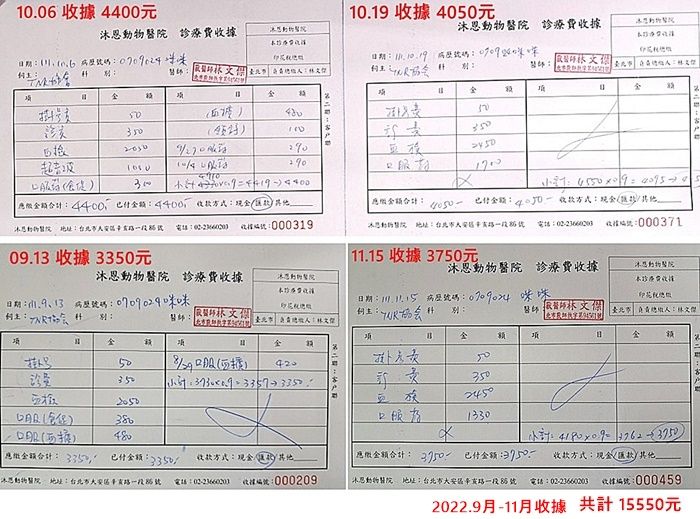 10.06 收據 4400元
沐恩動物醫院 診療費收據
沐恩動物醫院
本診療費收據
印花稅總繳
臺北市 負責總繳人:林文傑
日期:111.10.6 病歷號碼:0909024咪咪
飼主:TNR協會 科別: 醫師:
獸醫師林文傑
項目 金額 項目 金額
掛號費 50 (血檢) 480
診費 350 100
血檢 2050 9/27口服藥 290
超音波 1000 10/4口服藥 290
300 ×0.9=4419→4400
應繳金額合計:4400- 已付金額:4400- 收款方式:現金/匯款/其他
沐恩動物醫院 地址:台北市大安區辛亥路一段86號 電話:02-23660203 收據編號:000319
10.19 收據 4050元
沐恩動物醫院 診療費收據
沐恩動物醫院
本診療費收據
印花稅總繳
臺北市 負責總繳人:林文傑
日期:111.10.19 病歷號碼:0909024咪咪
飼主:TNR協會 科別: 醫師:
獸醫師林文傑
項目 金額 項目 金額
掛號費 50
診費 350
血檢 2450
口服藥 1700
小計:4550×0.9=4095
應繳金額合計:4050- 已付金額:4050- 收款方式:現金/匯款/其他
沐恩動物醫院 地址:台北市大安區辛亥路一段86號 電話:02-23660203 收據編號:000371
09.13 收據 3350元
沐恩動物醫院 診療費收據
沐恩動物醫院
本診療費收據
印花稅總繳
臺北市 負責總繳人:林文傑
日期:111.9.13 病歷號碼:0909024咪咪
飼主:TNR協會 科別: 醫師:
獸醫師林文傑
項目 金額 項目 金額
掛號 50 8/29口服(血檢) 420
診費 350 小計:3730×0.9=3357→3350-
血檢 2050
口服(食促) 380
口服(血檢) 480
應繳金額合計:3350- 已付金額:3350- 收款方式:現金/匯款/其他
沐恩動物醫院 地址:台北市大安區辛亥路一段86號 電話:02-23660203 收據編號:000209
11.15 收據 3750元
沐恩動物醫院 診療費收據
沐恩動物醫院
本診療費收據
印花稅總繳
臺北市 負責總繳人:林文傑
日期:111.11.15 病歷號碼:0909024 咪咪
飼主:TNR協會 科別: 醫師:
獸醫師林文傑
項目 金額 項目 金額
掛號費 50
診費 350
血檢 2450
口服藥 1330
小計:4180×0.9=3762→3750
應繳金額合計:3750- 已付金額:3750- 收款方式:現金/匯款/其他
沐恩動物醫院 地址:台北市大安區辛亥路一段86號 電話:02-23660203 收據編號:000459
2022.9月-11月收據 共計 15550元